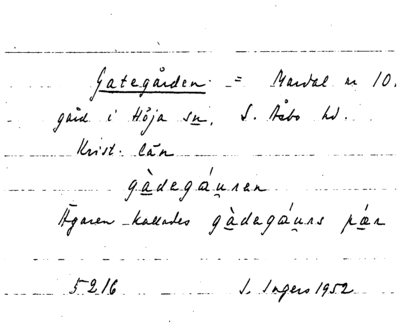 Gategården = Mardal nr 10.
gård i Höja sn, S. Åsbo hd.
Krist. län
gàdegáu̯ren
Ägaren kallades gàdegáu̯rs pær
5216 I. Ingers 1952